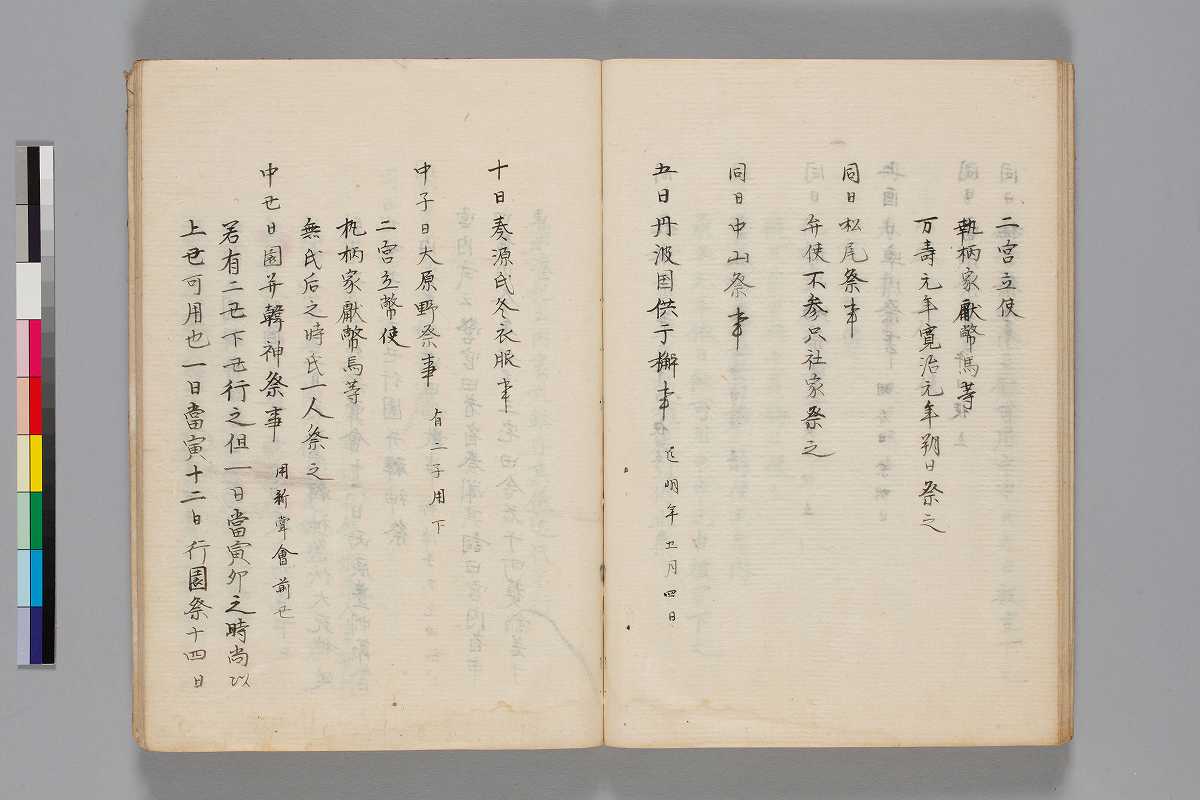 二宮立使
執柄家獻幣馬等
万壽元年寛治元年朔日祭之
同日松尾祭事
弁使不参只社家祭之
同日中山祭事
五日丹波国供于獬事 迄明年五月四日
十日奏源氏冬衣服事
中子日大原野祭事 有二子用下
二宮立幣使
執柄家獻幣馬等
無氏后之時氏一人祭之
中丑日園并韓神祭事 用新嘗會前丑
若有二丑下丑行之但一日當寅卯之時尚以
上丑可用也一日當寅十二日行園祭十四日